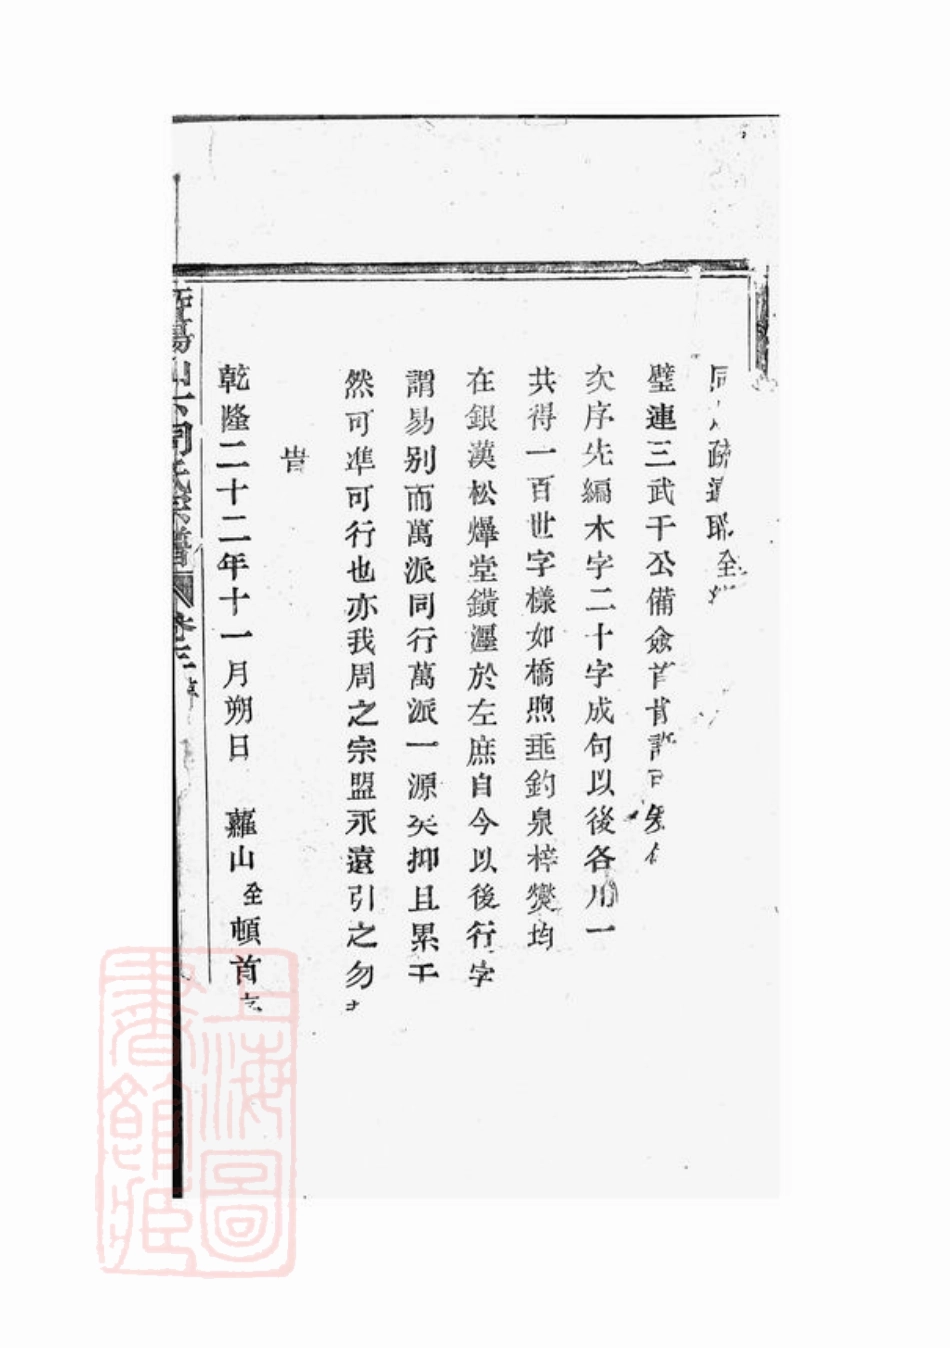 疏遠耶仝
璧連三武干公備僉首肯許可矣
次序先編木字二十字成句以後各用一
共得一百世字樣如橋煦垂釣泉梓爕均
在銀漢松燁堂鐄溼於左庶自今以後行字
謂易别而萬派同行萬派一源矣抑且累千
然可準可行也亦我周之宗盟永遠引之勿
告
乾隆二十二年十一月朔日 蘿山仝頓首
山下周氏宗譜 卷之 序
上海圖書館藏